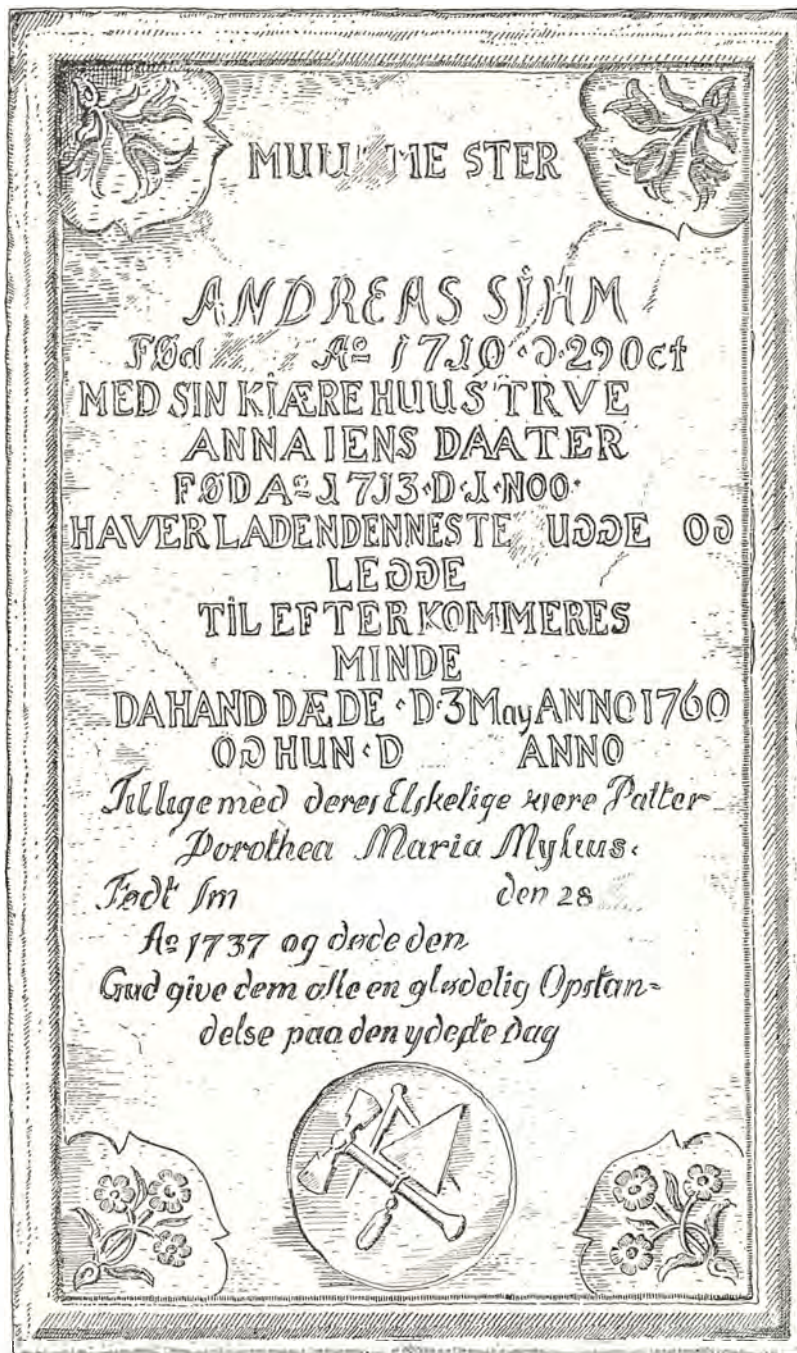 MUU ME STER
ANDREAS SIHM
FØd Ao 1710 · D · 29 Oct
MED SIN KIÆRE HUUSTRVE
ANNA IENS DAATER
FØD Ao 1713 · D · 1 · NOO ·
HAVER LADEN DENNE STE UGGE OG
LEGGE
TIL EFTERKOMMERES
MINDE
DA HAND DÆDE · D · 3 May ANNO 1760
OG HUN · D ANNO
Tillige med deres Elskelige kiere Datter
Dorothea Maria Mylius.
Født Im den 28
Ao 1737 og døde den
Gud give dem alle en glædelig Opstan=
delse paa den yderste Dag